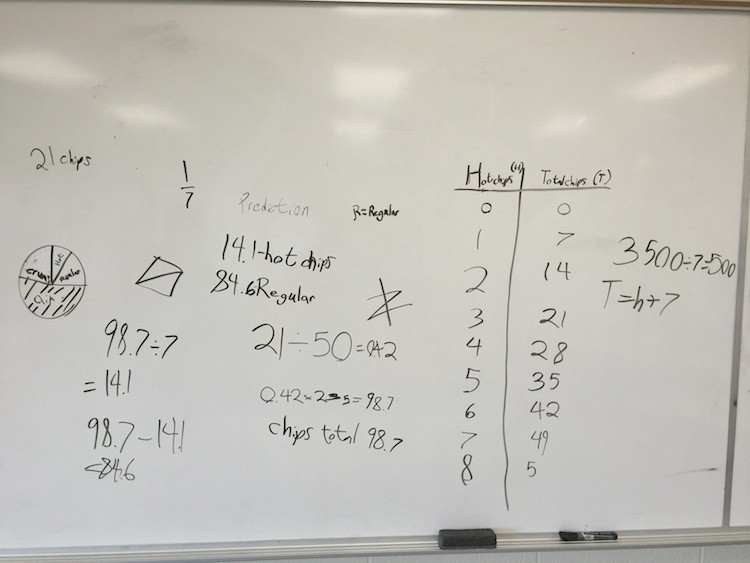 21 chips
1
7
Prediction
R=Regular
14.1-hot chips
84.6 Regular
Hot
98.7÷7
=14.1
98.7-14.1
=84.6
21÷50=0.42
0.42×235=98.7
chips total 98.7
Hot chips (H) Total chips (T)
0 0
1 7
2 14
3 21
4 28
5 35
6 42
7 49
8 5
3500÷7=500
T=h+7